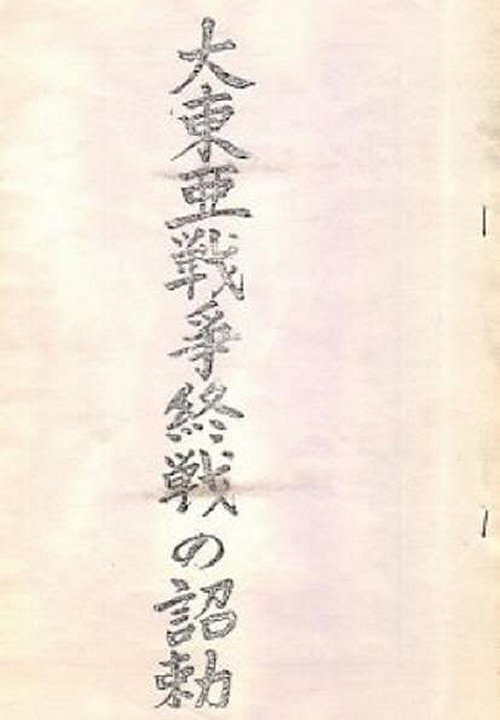 大東亜戦争終戦の詔勅